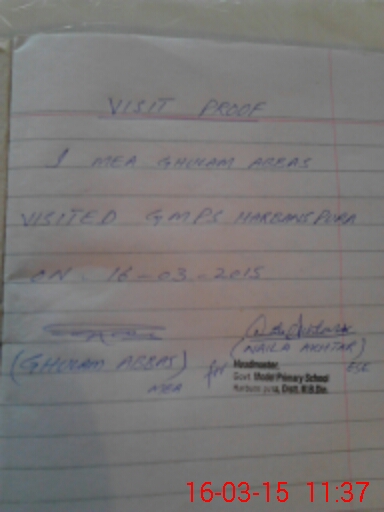 VISIT PROOF
I MEA GHULAM ABBAS
VISITED GMPS HARBANSPURA
ON 16-03-2015
(GHULAM ABBAS)
MEA
(NAILA AKHTAR)
ESE
for Headmaster,
Govt. Model Primary School
Distt. R.B.Do.
16-03-15 11:37